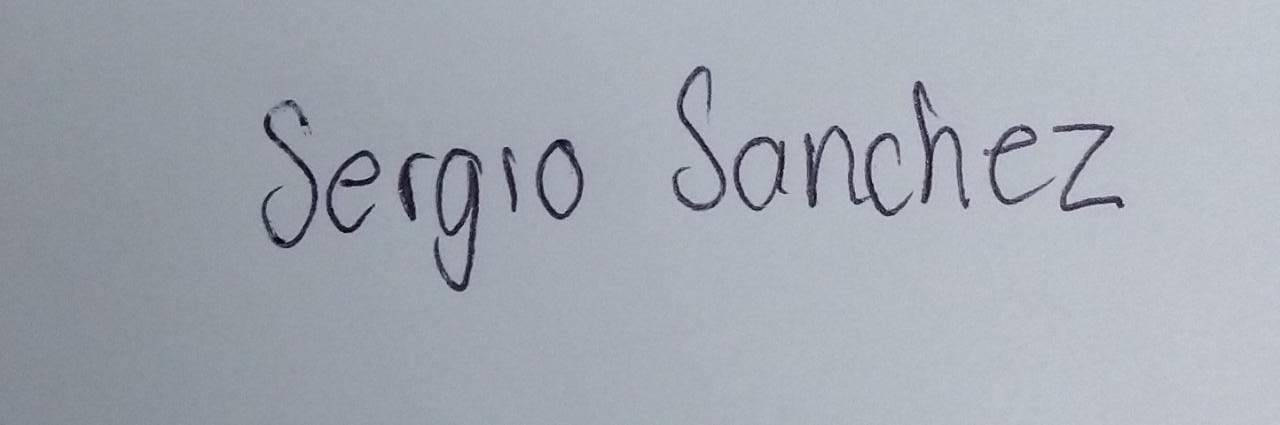 Sergio Sanchez